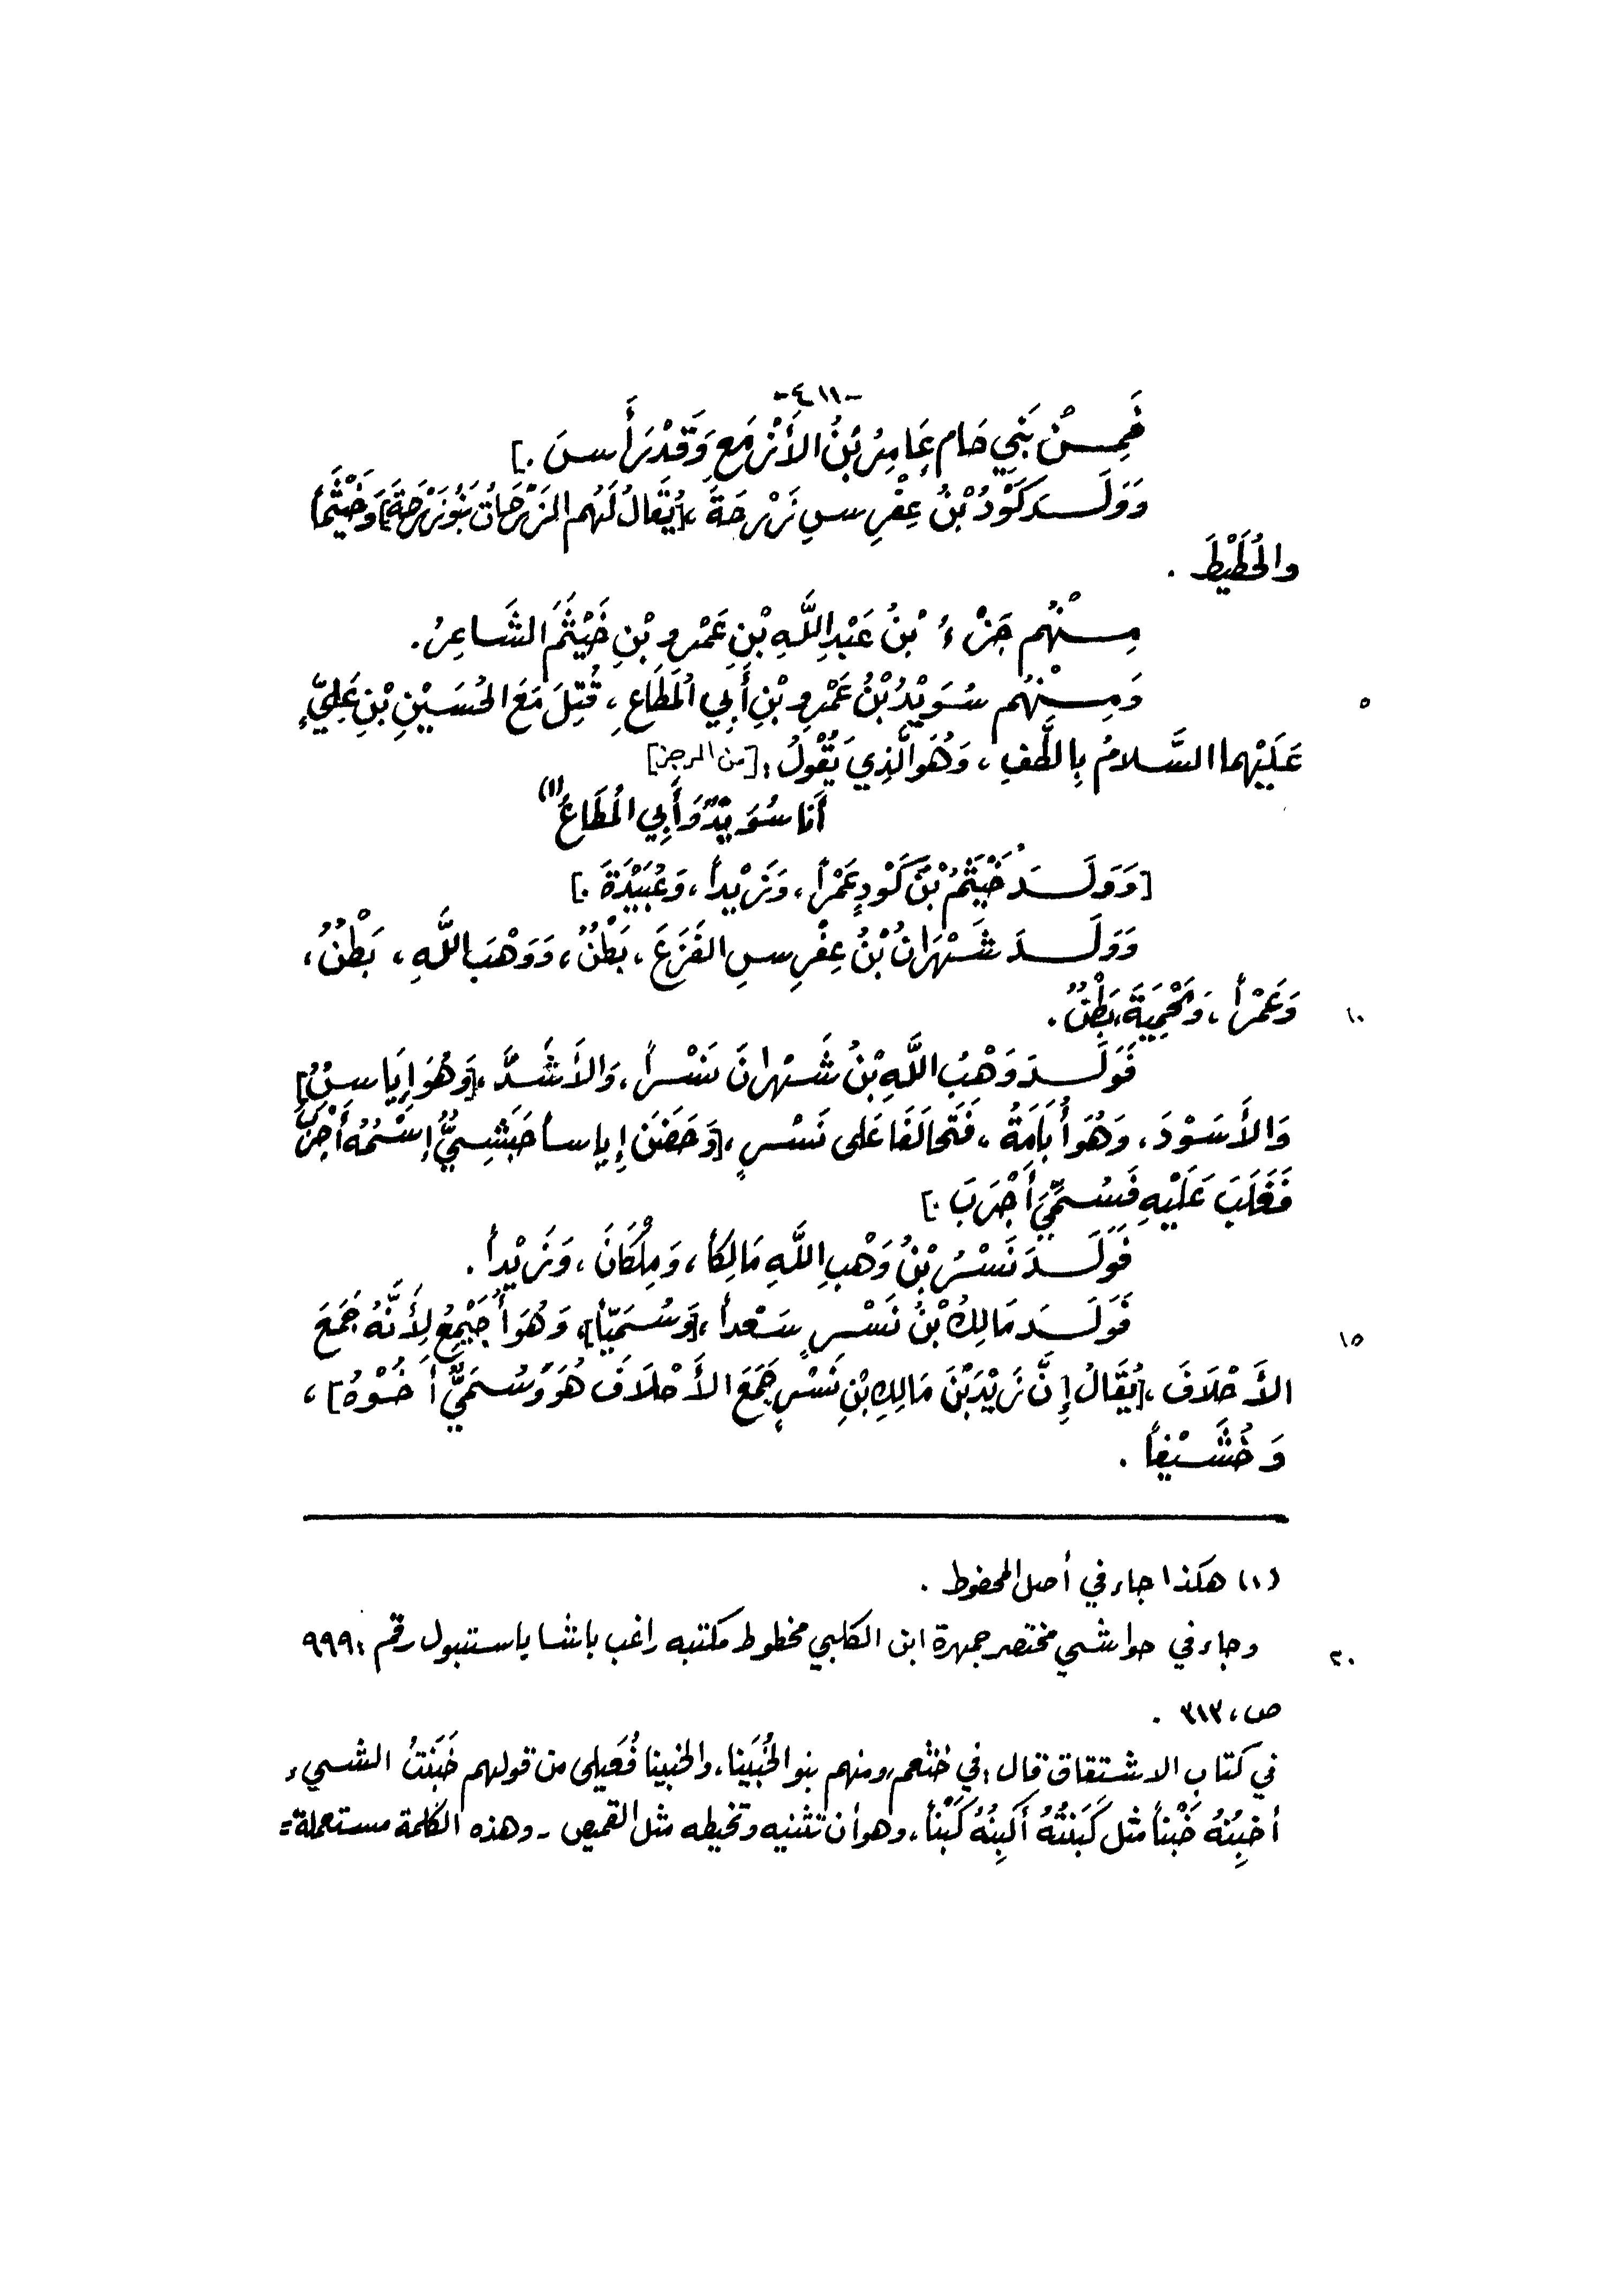 -٤١١-
فَمِنْ بَنِي حَام عَامِرُ بْنُ الأَزْمَعِ وَقَدْ رَأَسَ .]
وَوَلَدَ كَوْدُ بْنُ عِفْرِسِ زَرْحَةَ ،[يُقَالُ لَهُم الزَّرْحَاتُ بَنُو زَرْحَةَ]، وَخَيْثَماً
والخُطَيْطَ .
مِنْهُم جَزْءُ بْنُ عَبْدِ اللَّهِ بْنِ عَمْرِو بْنِ خَيْثَمَ الشَّاعِرُ.
وَمِنْهُم سُوَيْدُ بْنُ عَمْرِو بْنِ أَبِي المُطَاعِ ، قُتِلَ مَعَ الحُسَيْنِ بْنِ عَلِيٍّ
٥
عَلَيْهما السَّلامُ بِالطَّفِ ، وَهُوَ الَّذِي يَقُوْلُ : [من الرجز]
أَنَا سُوَيْدٌ وَأَبِي المُطَاعُ (١)
[وَوَلَدَ خَيْثَمُ بْنُ كَوْدٍ عَمْراً ، وَزَيْداً ، وَعُبَيْدَةَ .]
وَوَلَدَ شَهْرَانُ بْنُ عِفْرِسِ الفَزَعَ ، بَطْنٌ ، وَوَهْبَ اللَّهِ ، بَطْنٌ ،
وَعَمْراً ، وَمَحْمِيَةَ ، بَطْنٌ .
١٠
فَوَلَدَ وَهْبُ اللَّهِ بْنُ شَهْرانَ نَسْراً ، وَالأَشَدَّ ،[وَهُوَ إِيَاسٌ]
وَالأَسْوَدَ ، وَهُوَ أُبَامَةُ ، فَتَحَالَفَا عَلى نَسْرٍ ،[وَحَضَنَ إِياساً حَبَشِيٌّ إِسْمُهُ أَجْرَبُ
فَغَلَبَ عَلَيْهِ فَسُمِّيَ أَجْرَبَ .]
فَوَلَدَ نَسْرُ بْنُ وَهْبِ اللَّهِ مَالِكاً ، وَمِلْكَانَ ، وَزَيْداً .
فَوَلَدَ مَالِكُ بْنُ نَسْرٍ سَعْداً ،[وَسُمَيّاً]، وَهُوَ أُجَيْمِعُ لِأَنَّهُ جَمَعَ
١٥
الأَحْلَافَ ،[يُقَالُ إِنَّ زَيْدَ بْنَ مَالِكِ بْنِ نَسْرٍ جَمَعَ الأَحْلَافَ هُوَ وَسُمَيٌّ أَخُوْهُ] ،
وَخُشَيْناً .
(١) هكذا جاء في أصل المخطوط .
وجاء في حواشي مختصر جمهرة ابن الكلبي مخطوط مكتبه راغب باشا ياستنبول رقم : ٩٩٩
٢٠
ص ، ٣١٣ .
في كتاب الاشتقاق قال : في خثعم ، ومنهم بنو الخُبَينا ، والخبينا فُعَيلى من قولهم خَبَنْتُ الشيء
أخبِنُهُ خَبْناً مثل كَبَنتُهُ أَكبِنُهُ كَبْناً ، وهو أن تثنيه وتخيطه مثل القميص - وهذه الكلمة مستعملة =